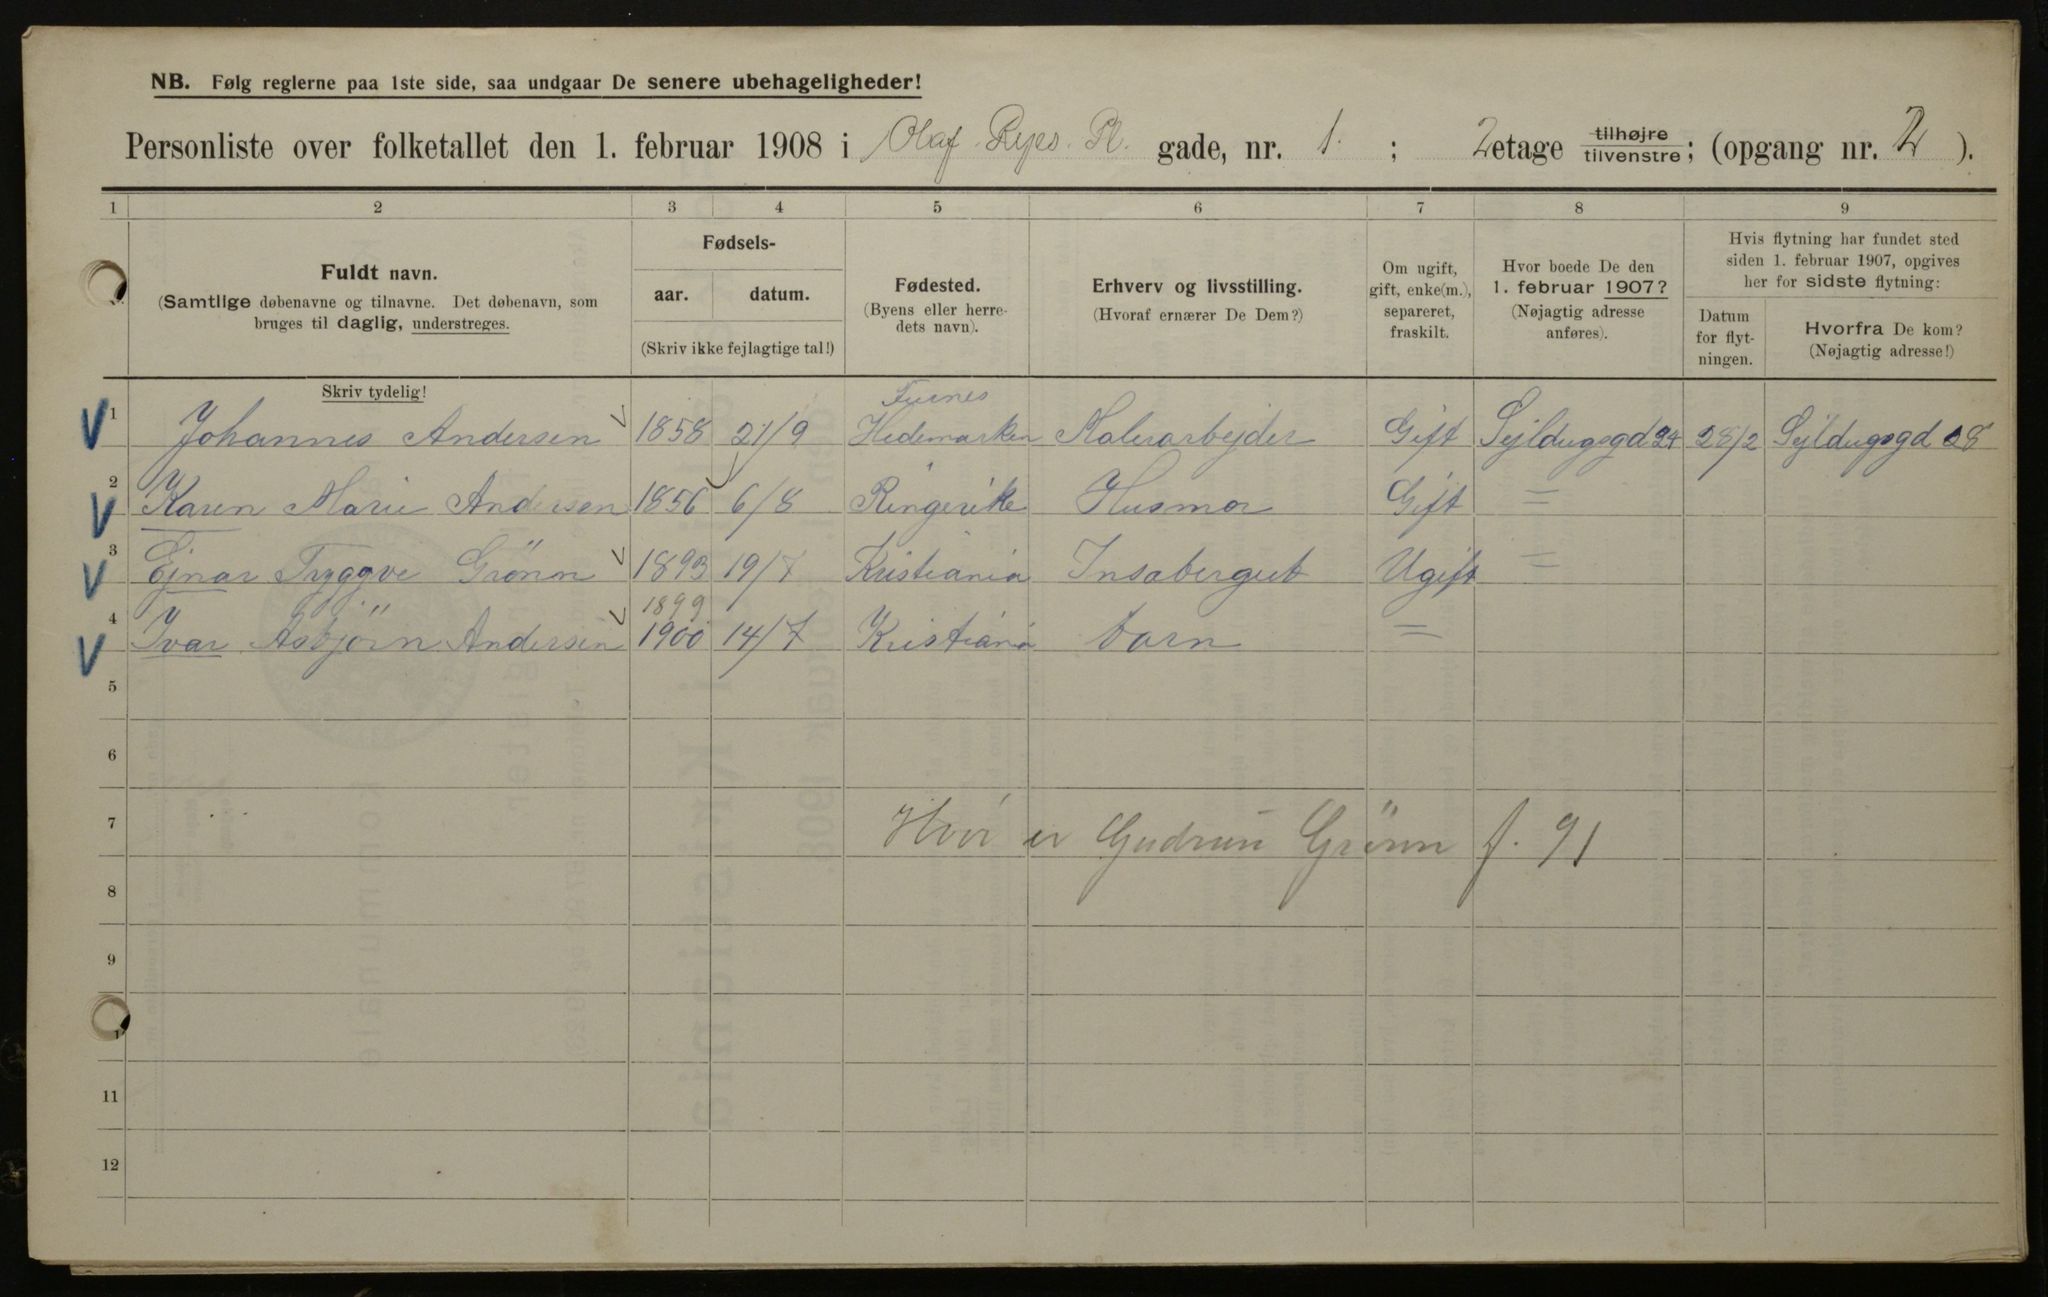 NB. Følg reglerne paa 1ste side, saa undgaar De senere ubehageligheder!
Personliste over folketallet den 1. februar 1908 i Olaf Ryes Pl. gade, nr. 1. ; 2 etage tilhøjre tilvenstre; (opgang nr. 2 ).
1 2 3 4 5 6 7 8 9
Fuldt navn.
(Samtlige døbenavne og tilnavne. Det døbenavn, som
bruges til daglig, understreges.
Fødsels-
aar. datum.
(Skriv ikke fejlagtige tal!)
Fødested.
(Byens eller herre-
dets navn).
Erhverv og livsstilling.
(Hvoraf ernærer De Dem?)
Om ugift,
gift, enke(m.),
separeret,
fraskilt.
Hvor boede De den
1. februar 1907?
(Nøjagtig adresse
anføres).
Hvis flytning har fundet sted
siden 1. februar 1907, opgives
her for sidste flytning:
Datum
for flyt-
ningen.
Hvorfra De kom?
(Nøjagtig adresse!)
Skriv tydelig!
Furnes
1 Johannes Andersen 1858 21/9 Hedemarken Gift Sejldugsgd 24 28/2 Sejldugsgd 28
2 Karen Marie Andersen 1856 6/8 Ringerike Husmor Gift =
3 Ejnar Tryggve Grönn 1893 19/7 Kristiania Ugift =
1899
4 Ivar Asbjörn Andersen 1900 14/7 Kristiania barn =
5
6
7 Hvor er Gudrun Grönn f. 91
8
9
11
12